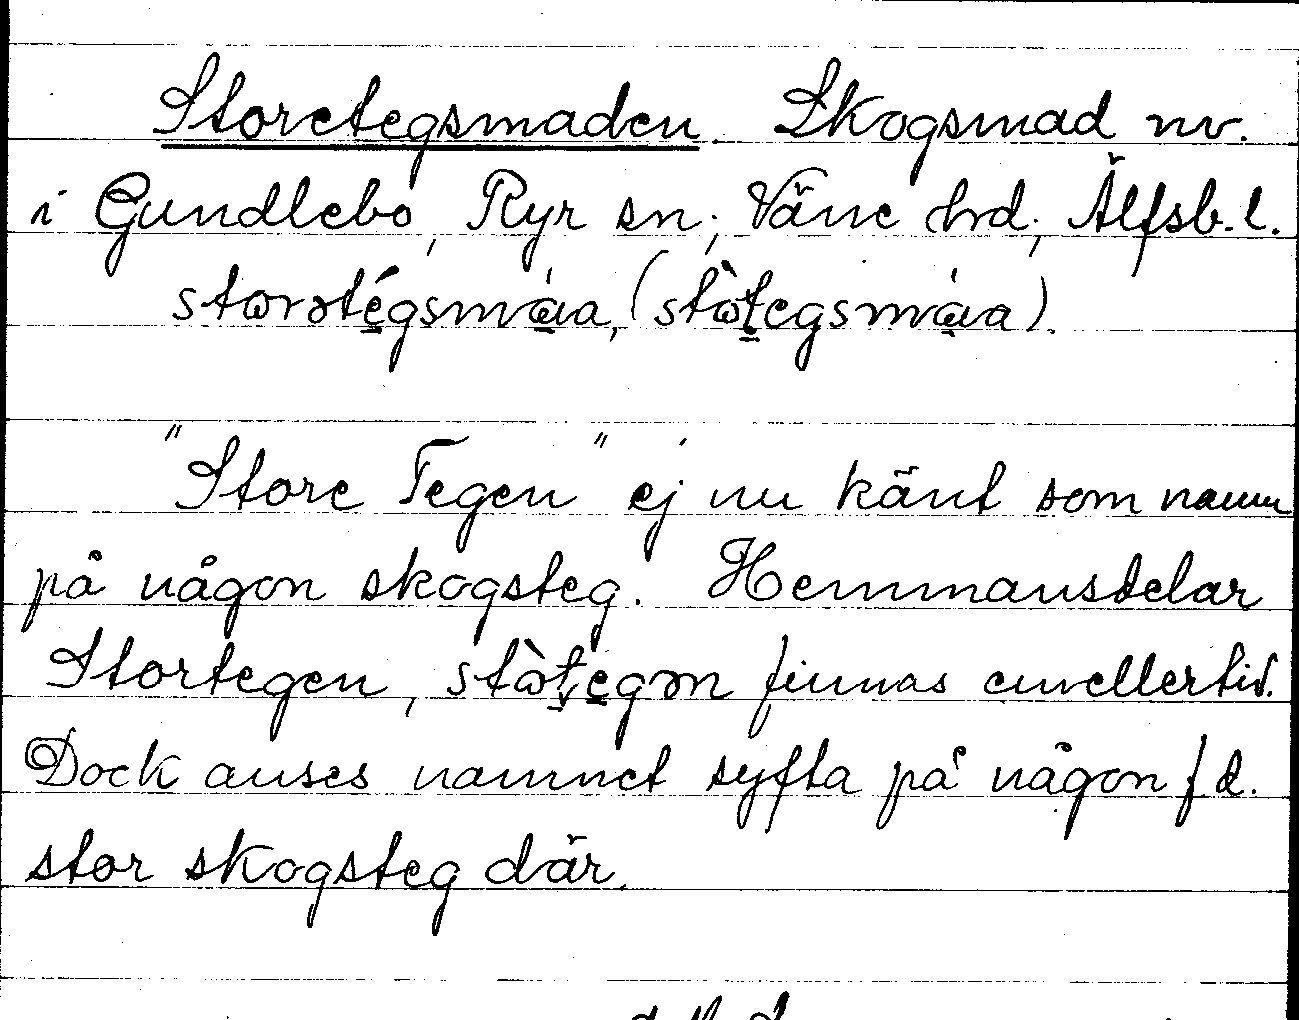 Storetegsmaden. Skogsmad nv.
i Gundlebo, Ryr sn; Väne hrd; Älfsb. l.
storətégsmàa, (stòtegsmàa).
"Store Tegen" ej nu känt som namn
på någon skogsteg. Hemmansdelar
Stortegen, stòtegən finnas emellertid.
Dock anses namnet syfta på någon f d.
stor skogsteg där.